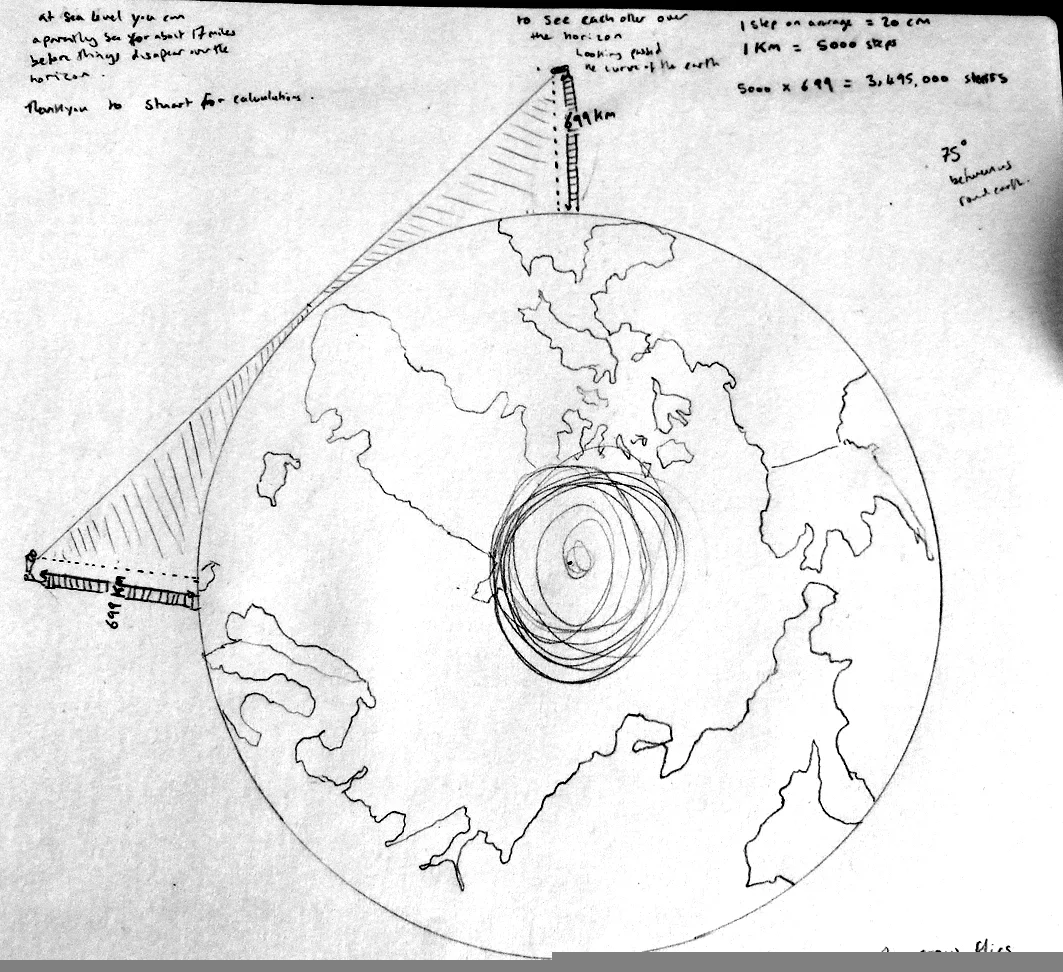 at Sea level you can
aparently See for about 17 miles
before things disapear over the
horizon.
Thankyou to Stuart for calculations.
to See each other over
the horizon
Looking passed
the curve of the earth
1 Step on average = 20 cm
1 Km = 5000 steps
5000 x 699 = 3,495,000 steps
75°
between us
round earth.
699 Km
699 Km
crow flies